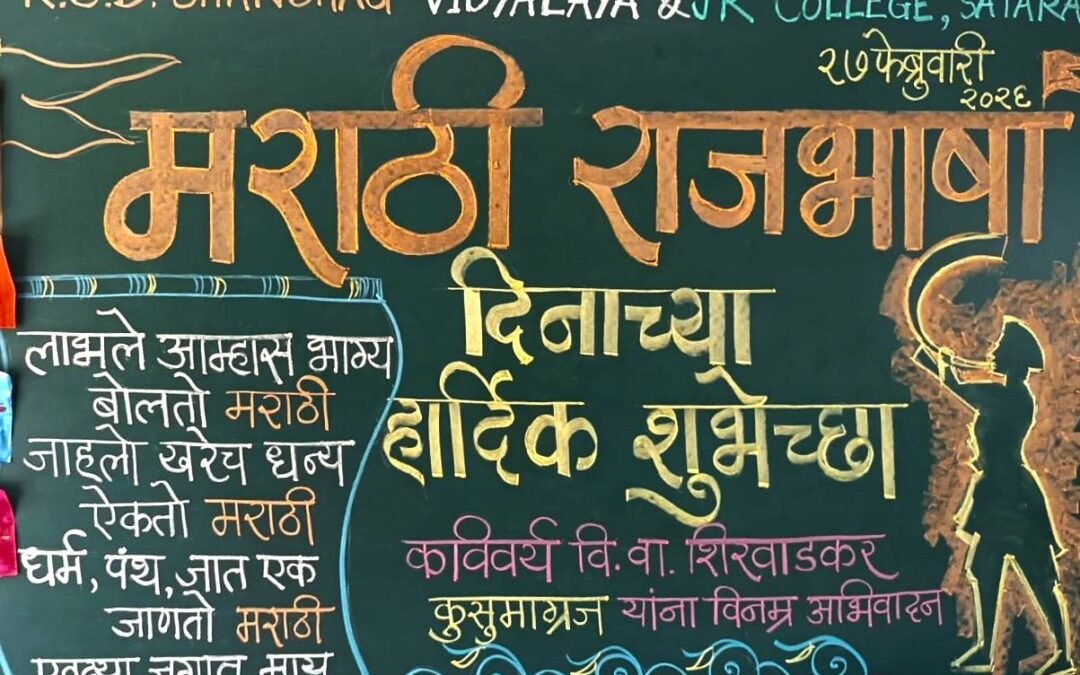 VIDYALAYA & JR COLLEGE, SATARA
२७ फेब्रुवारी
२०२६
मराठी राजभाषा
दिनाच्या
हार्दिक शुभेच्छा
कविवर्य वि. वा. शिरवाडकर
कुसुमाग्रज यांना विनम्र अभिवादन
लाभले आम्हास भाग्य
बोलतो मराठी
जाहलो खरेच धन्य
ऐकतो मराठी
धर्म, पंथ, जात एक
जाणतो मराठी
एवढ्या जगात माय